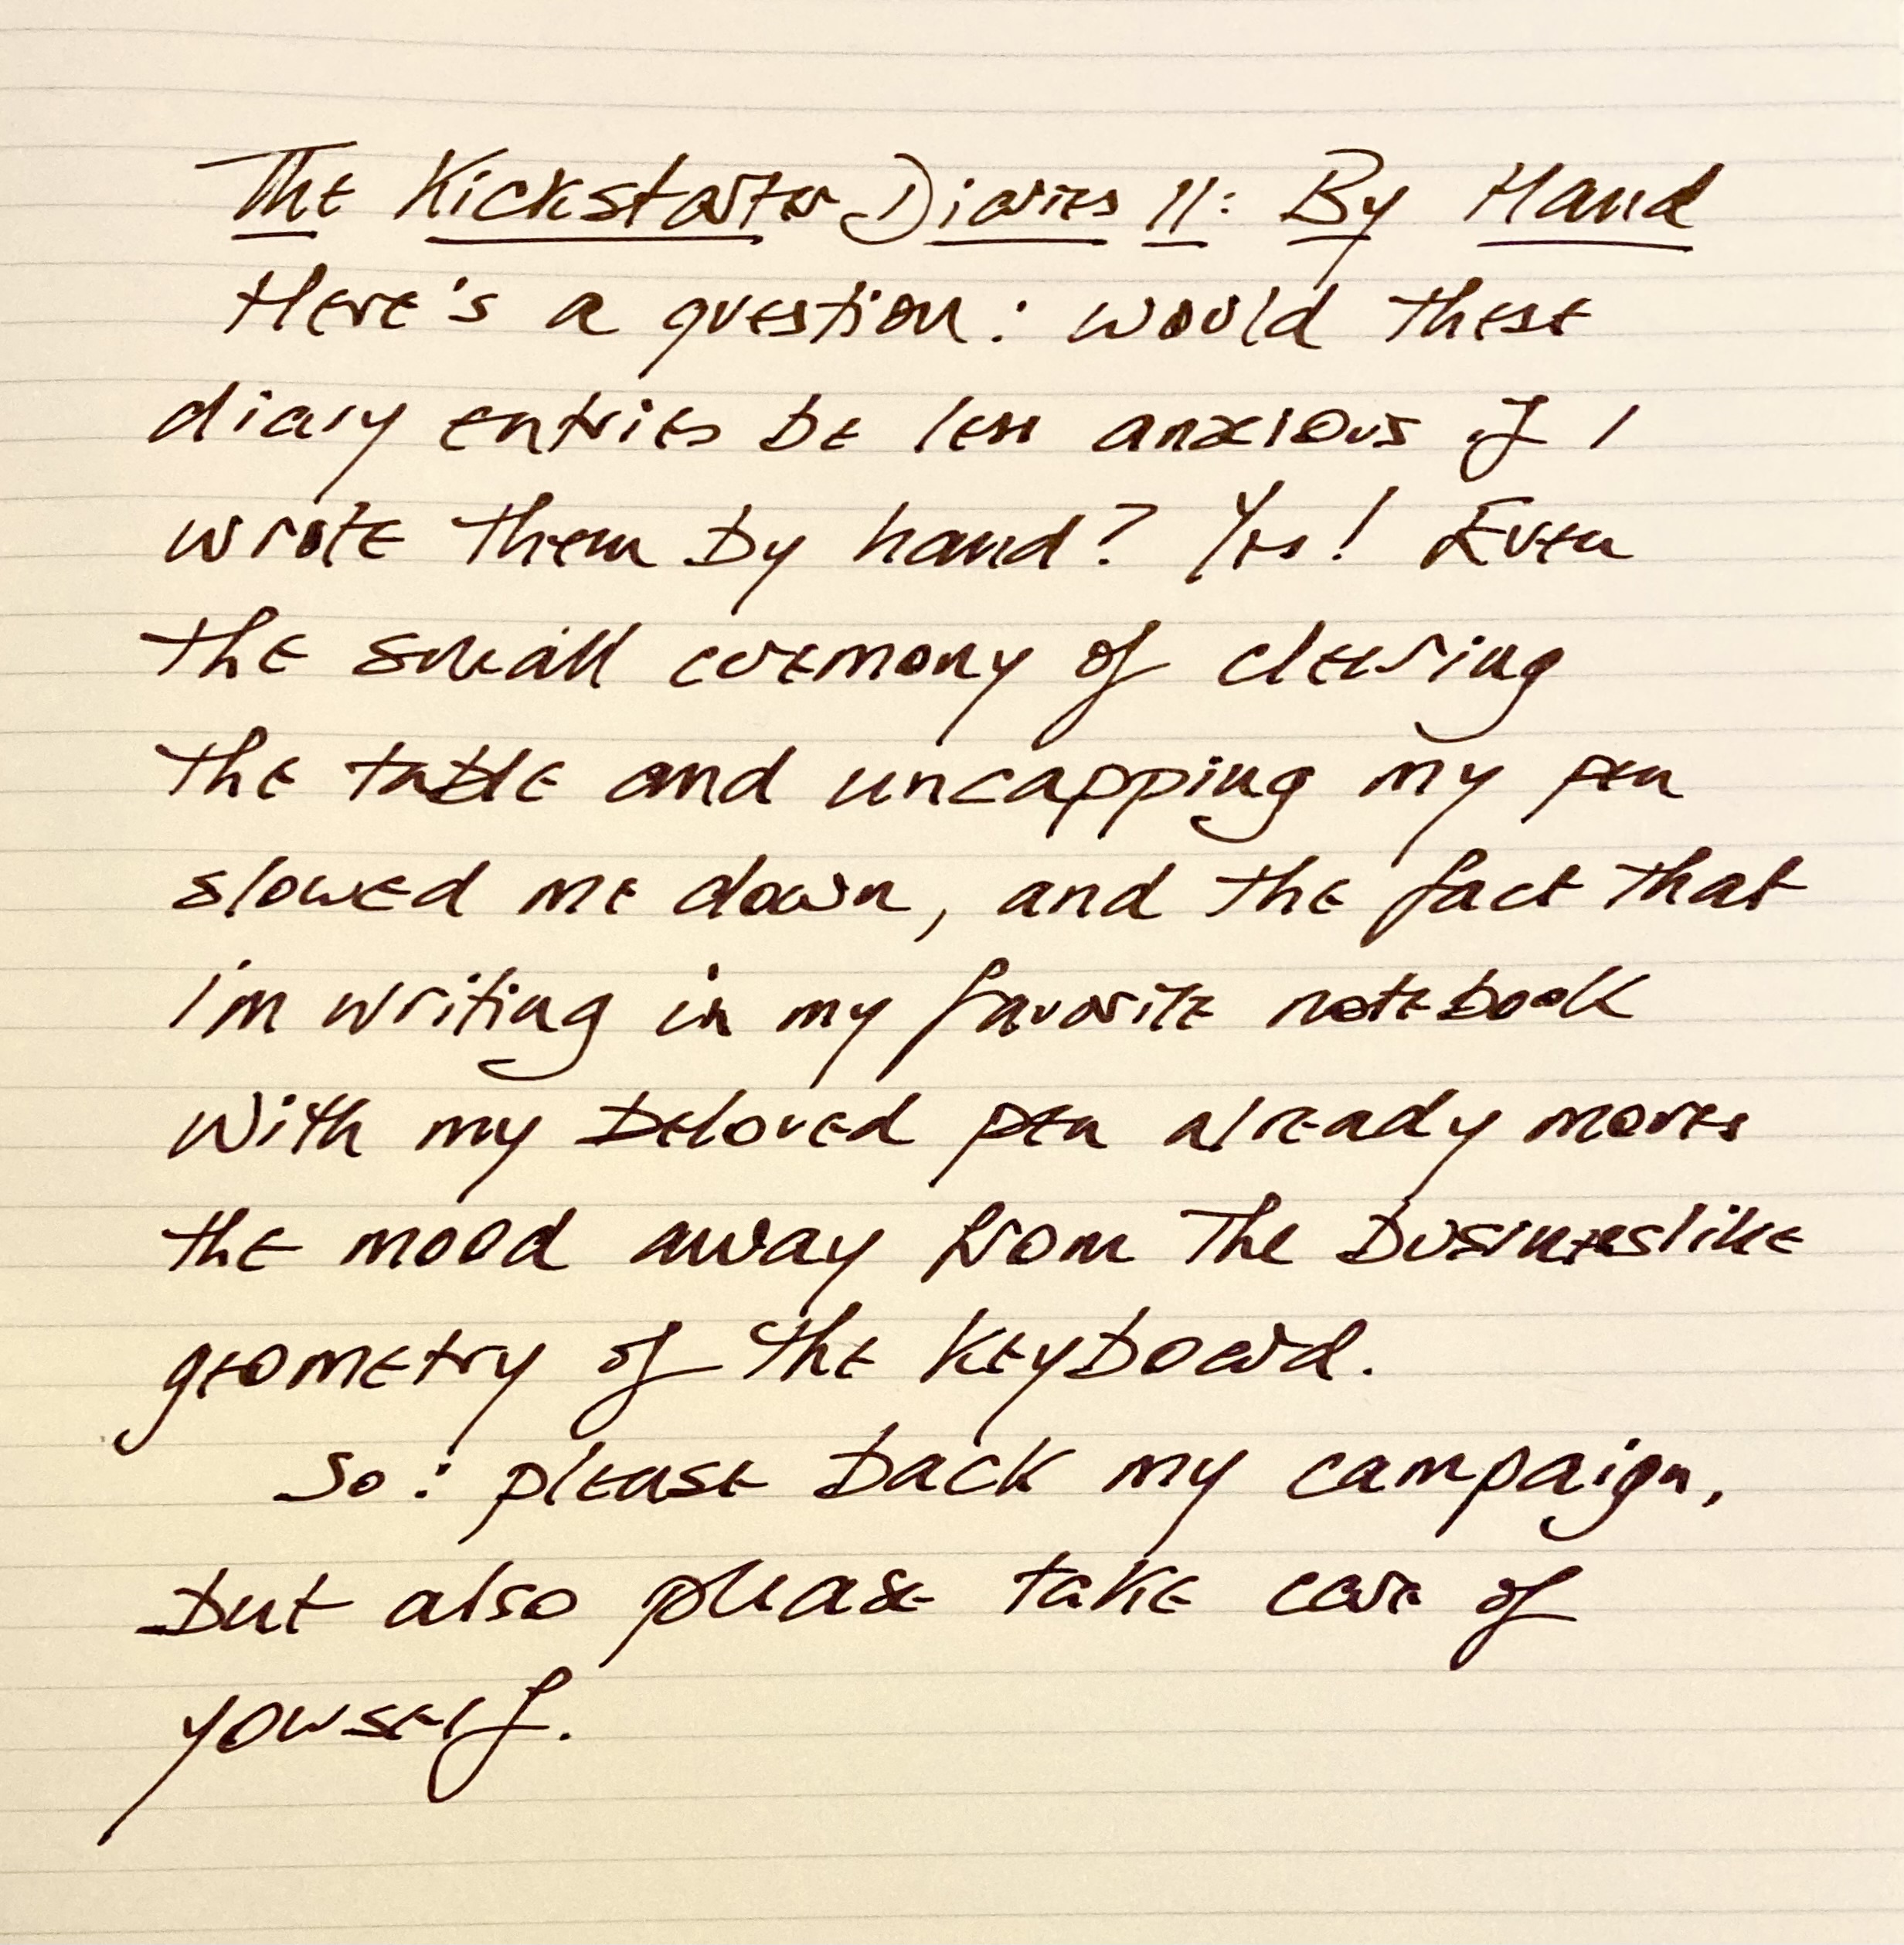 The Kickstarter Diaries 11: By Hand
Here's a question: would these
diary entries be less anxious if I
wrote them by hand? Yes! Even
the small ceremony of clearing
the table and uncapping my pen
slowed me down, and the fact that
I'm writing in my favorite notebook
with my beloved pen already moves
the mood away from the businesslike
geometry of the keyboard.
So: please back my campaign,
but also please take care of
yourself.